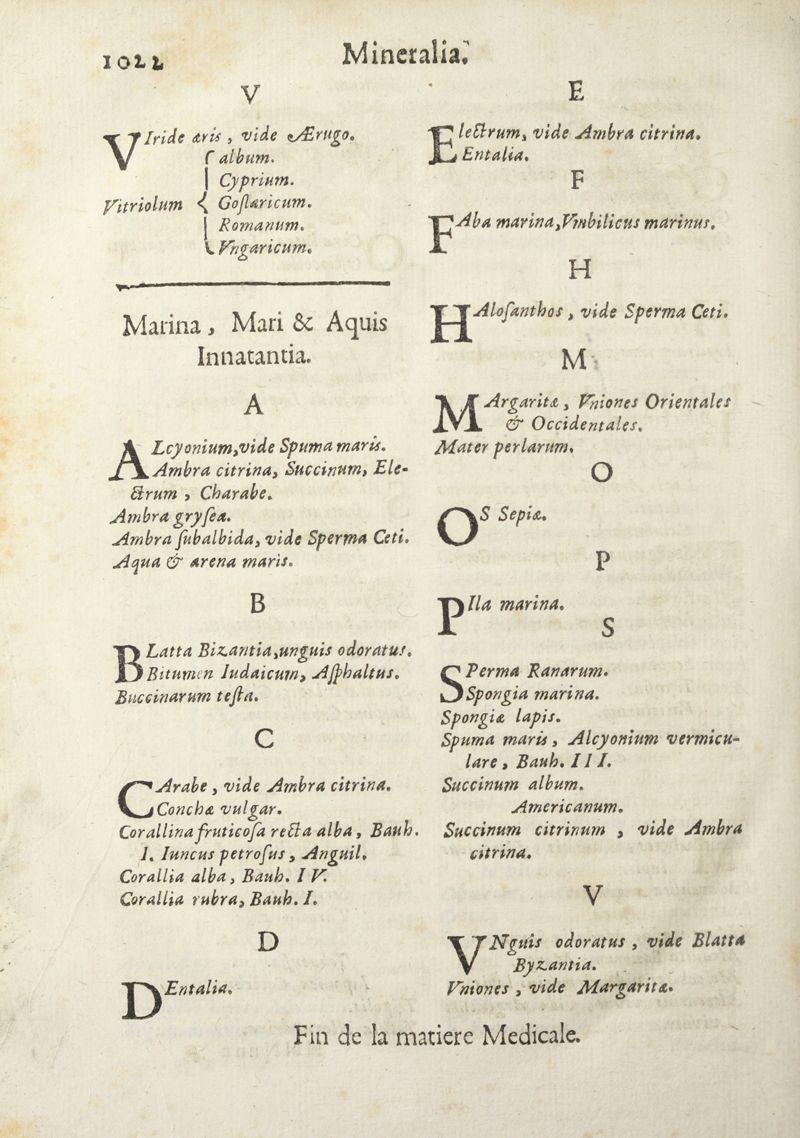 1022
Mineralia.
V
VIride æris, vide Ærugo.
album.
Cyprium.
Vitriolum { Goſlaricum.
Romanum.
Vngaricum.
Marina, Mari & Aquis
Innatantia.
A
ALcyonium, vide Spuma maris.
Ambra citrina, Succinum, Ele-
ctrum, Charabe.
Ambra gryſea.
Ambra ſubalbida, vide Sperma Ceti.
Aqua & arena maris.
B
BLatta Bizantia, unguis odoratus.
Bitumen Iudaicum, Aſphaltus.
Buccinarum teſta.
C
CArabe, vide Ambra citrina.
Conchæ vulgar.
Corallina fruticoſa recta alba, Bauh.
I. Iuncus petroſus, Anguil.
Corallia alba, Bauh. IV.
Corallia rubra, Bauh. I.
D
DEntalia.
E
ELectrum, vide Ambra citrina.
Entalia.
F
FAba marina, Vmbilicus marinus.
H
HAloſanthos, vide Sperma Ceti.
M
MArgaritæ, Vniones Orientales
& Occidentales.
Mater perlarum.
O
OS Sepiæ.
P
PIla marina.
S
SPerma Ranarum.
Spongia marina.
Spongiæ lapis.
Spuma maris, Alcyonium vermicu-
lare, Bauh. III.
Succinum album.
Americanum.
Succinum citrinum, vide Ambra
citrina.
V
VNguis odoratus, vide Blatta
Byzantia.
Vniones, vide Margaritæ.
Fin de la matiere Medicale.